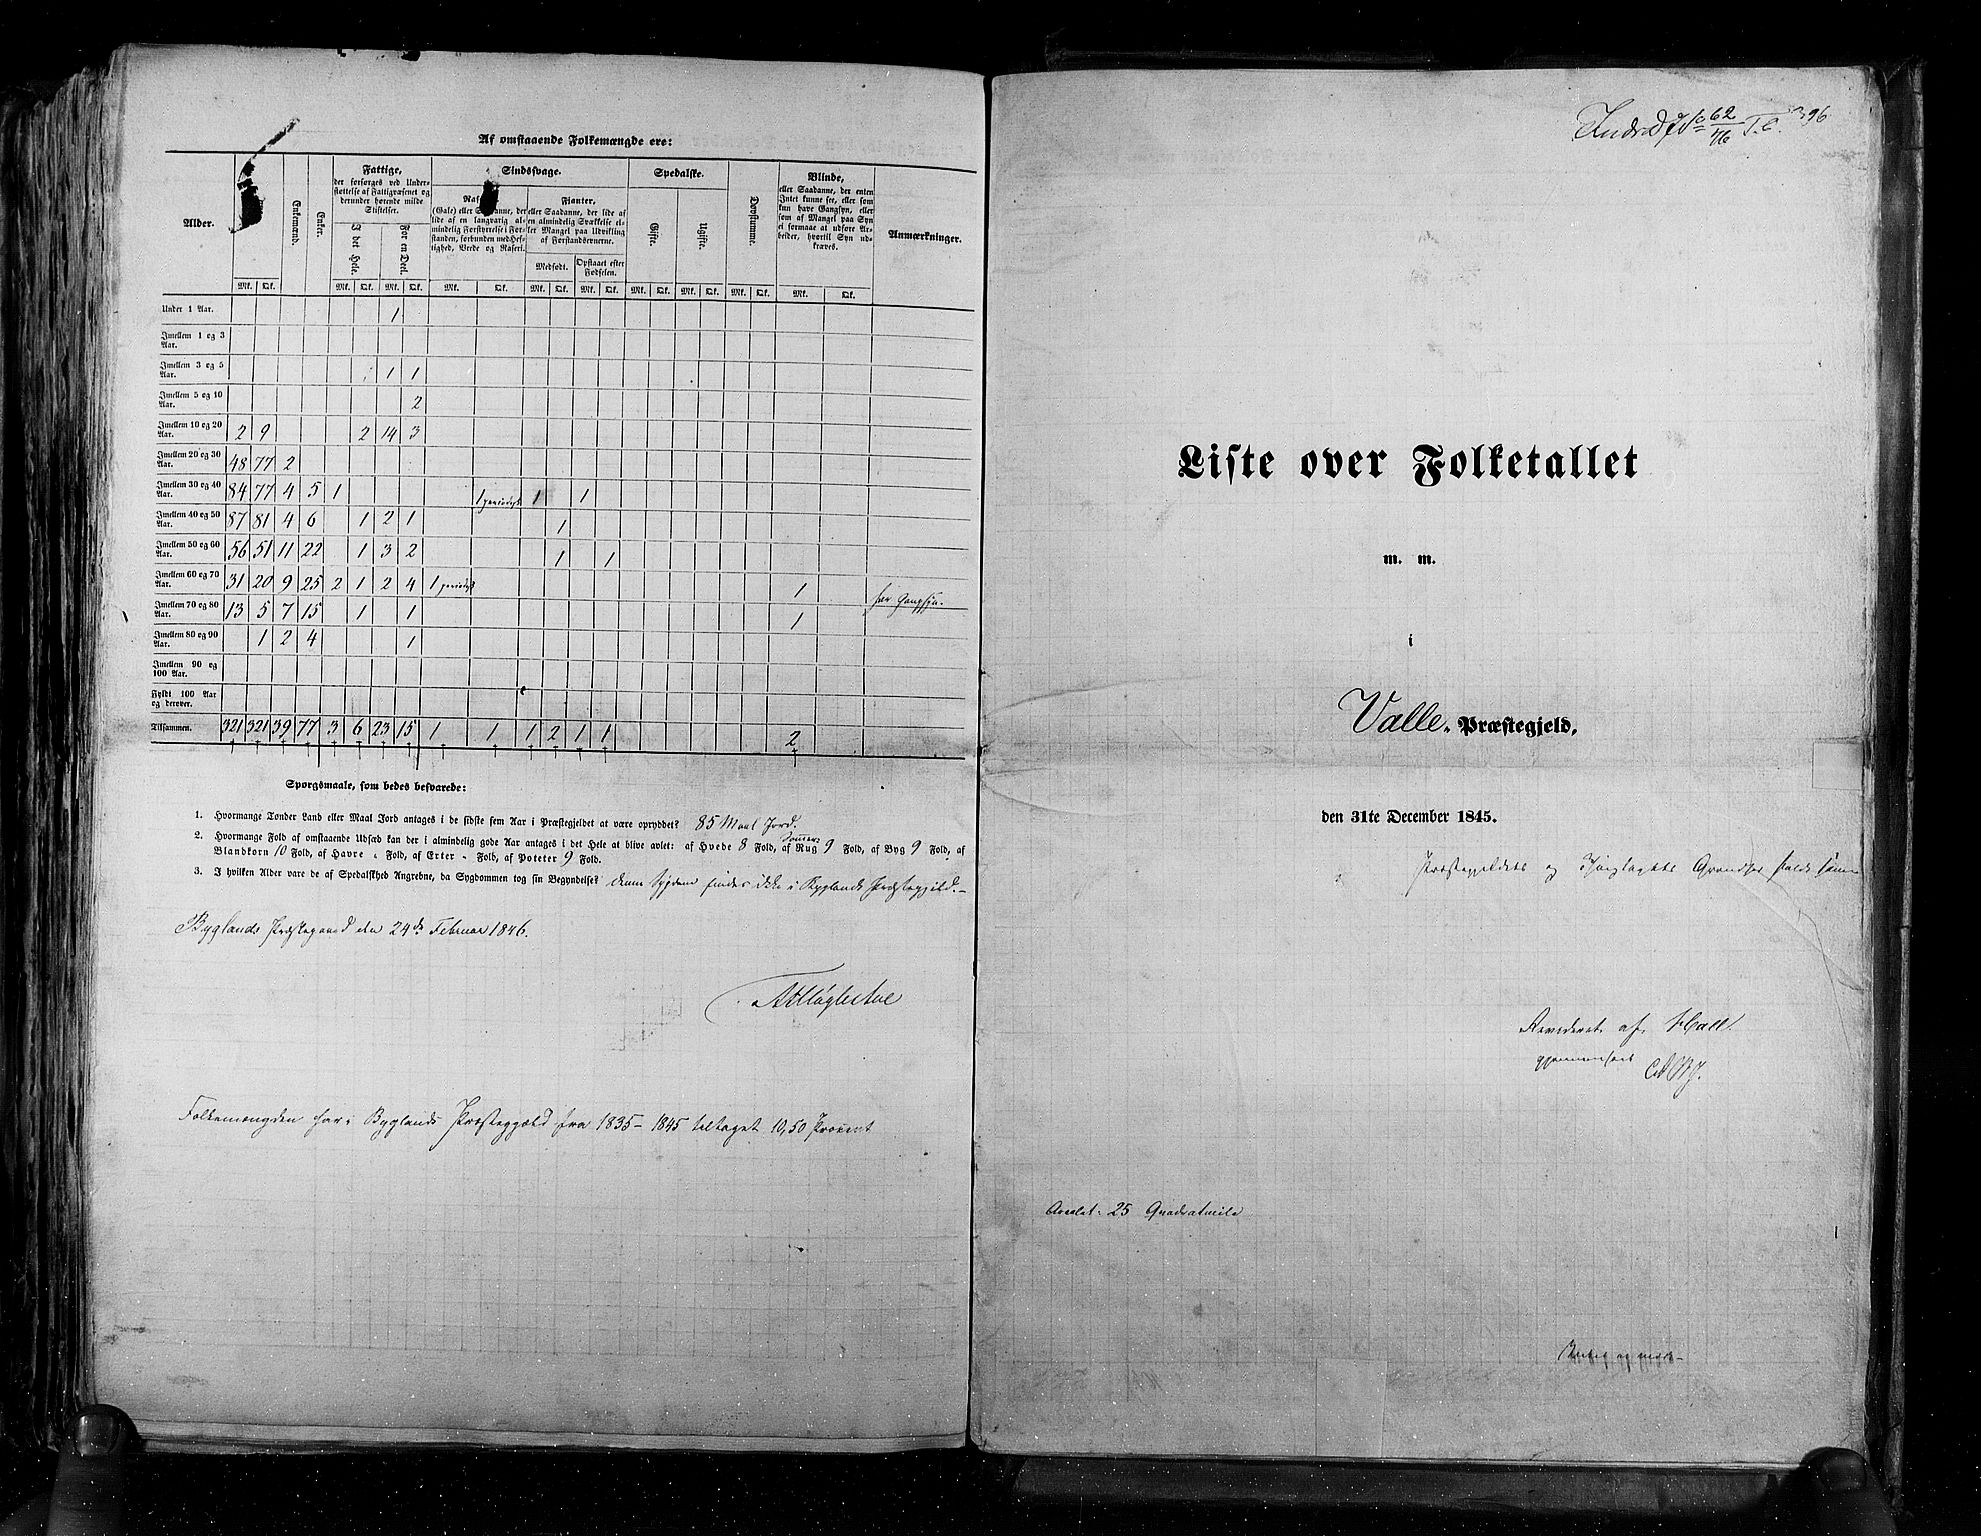 Af omstaaende Folkemængde ere:
Alder. Enkemænd. Enker. Fattige, der forsørges ved Understøttelse af Fattigvæsenet og derunder hørende milde Stiftelser. Sindssvage. Spedalske. Døvstumme. Blinde, eller Saadanne, der enten Intet kunne see, eller som kun have Gangsyn, eller som af Mangel paa Syn ei formaae at udføre Arbeider, hvortil Syn udkræves. Anmærkninger.
(Gale) eller Saadanne, der lide af en langvarig almindelig Forstyrrelse i Forstanden, forbunden med Heftighed, Vrede og Raseri.
Fjanter, eller Saadanne, der lide af en almindelig Svækkelse eller Mangel paa Udvikling af Forstandsevnerne.
I det Hele. For en Deel. Medfødt. Opstaaet efter Fødselen. Gifte. Ugifte.
Mk. Qk. Mk. Qk. Mk. Qk. Mk. Qk. Mk. Qk. Mk. Qk. Mk. Qk. Mk. Qk. Mk. Qk. Mk. Qk.
Under 1 Aar. 1
Imellem 1 og 3 Aar.
Imellem 3 og 5 Aar. 1 1
Imellem 5 og 10 Aar. 2
Imellem 10 og 20 Aar. 2 9 2 14 3
Imellem 20 og 30 Aar. 48 77 2
Imellem 30 og 40 Aar. 84 77 4 5 1 1 periodisk 1 1
Imellem 40 og 50 Aar. 87 81 4 6 1 2 1 1
Imellem 50 og 60 Aar. 56 51 11 22 1 3 2 1 1
Imellem 60 og 70 Aar. 31 20 9 25 2 1 2 4 1 periodisk 1 har Gangsyn.
Imellem 70 og 80 Aar. 13 5 7 15 1 1 1
Imellem 80 og 90 Aar. 1 2 4 1
Imellem 90 og 100 Aar.
Fyldt 100 Aar og derover.
Tilsammen. 321 321 39 77 3 6 23 15 1 1 1 2 1 1 2
Spørgsmaale, som bedes besvarede:
1. Hvormange Tønder Land eller Maal Jord antages i de sidste fem Aar i Præstegjeldet at være opryddet? 85 Maal Jord.
2. Hvormange Fold af omstaaende Udsæd kan der i almindelig gode Aar antages i det Hele at blive avlet: af Hvede 8 Fold, af Sommer Rug 9 Fold, af Byg 9 Fold, af
Blandkorn 10 Fold, af Havre " Fold, af Erter " Fold, af Poteter 9 Fold.
3. I hvilken Alder vare de af Spedalskhed Angrebne, da Sygdommen tog sin Begyndelse? denne Sygdom findes ikke i Byglands Præstegjeld.
Byglands Præstegaard den 24de Februar 1846.
Folkemængden har i Byglands Præstegjeld fra 1835–1845 tiltaget 10,50 Procent
No 62/46 T.C. 396
Liste over Folketallet
m. m.
i
Valle Præstegjeld,
den 31te December 1845.
Præstegjeldets og Thinglagets Grændser falde sammen
Revideret af Hall.
Arealet: 25 Quadratmile